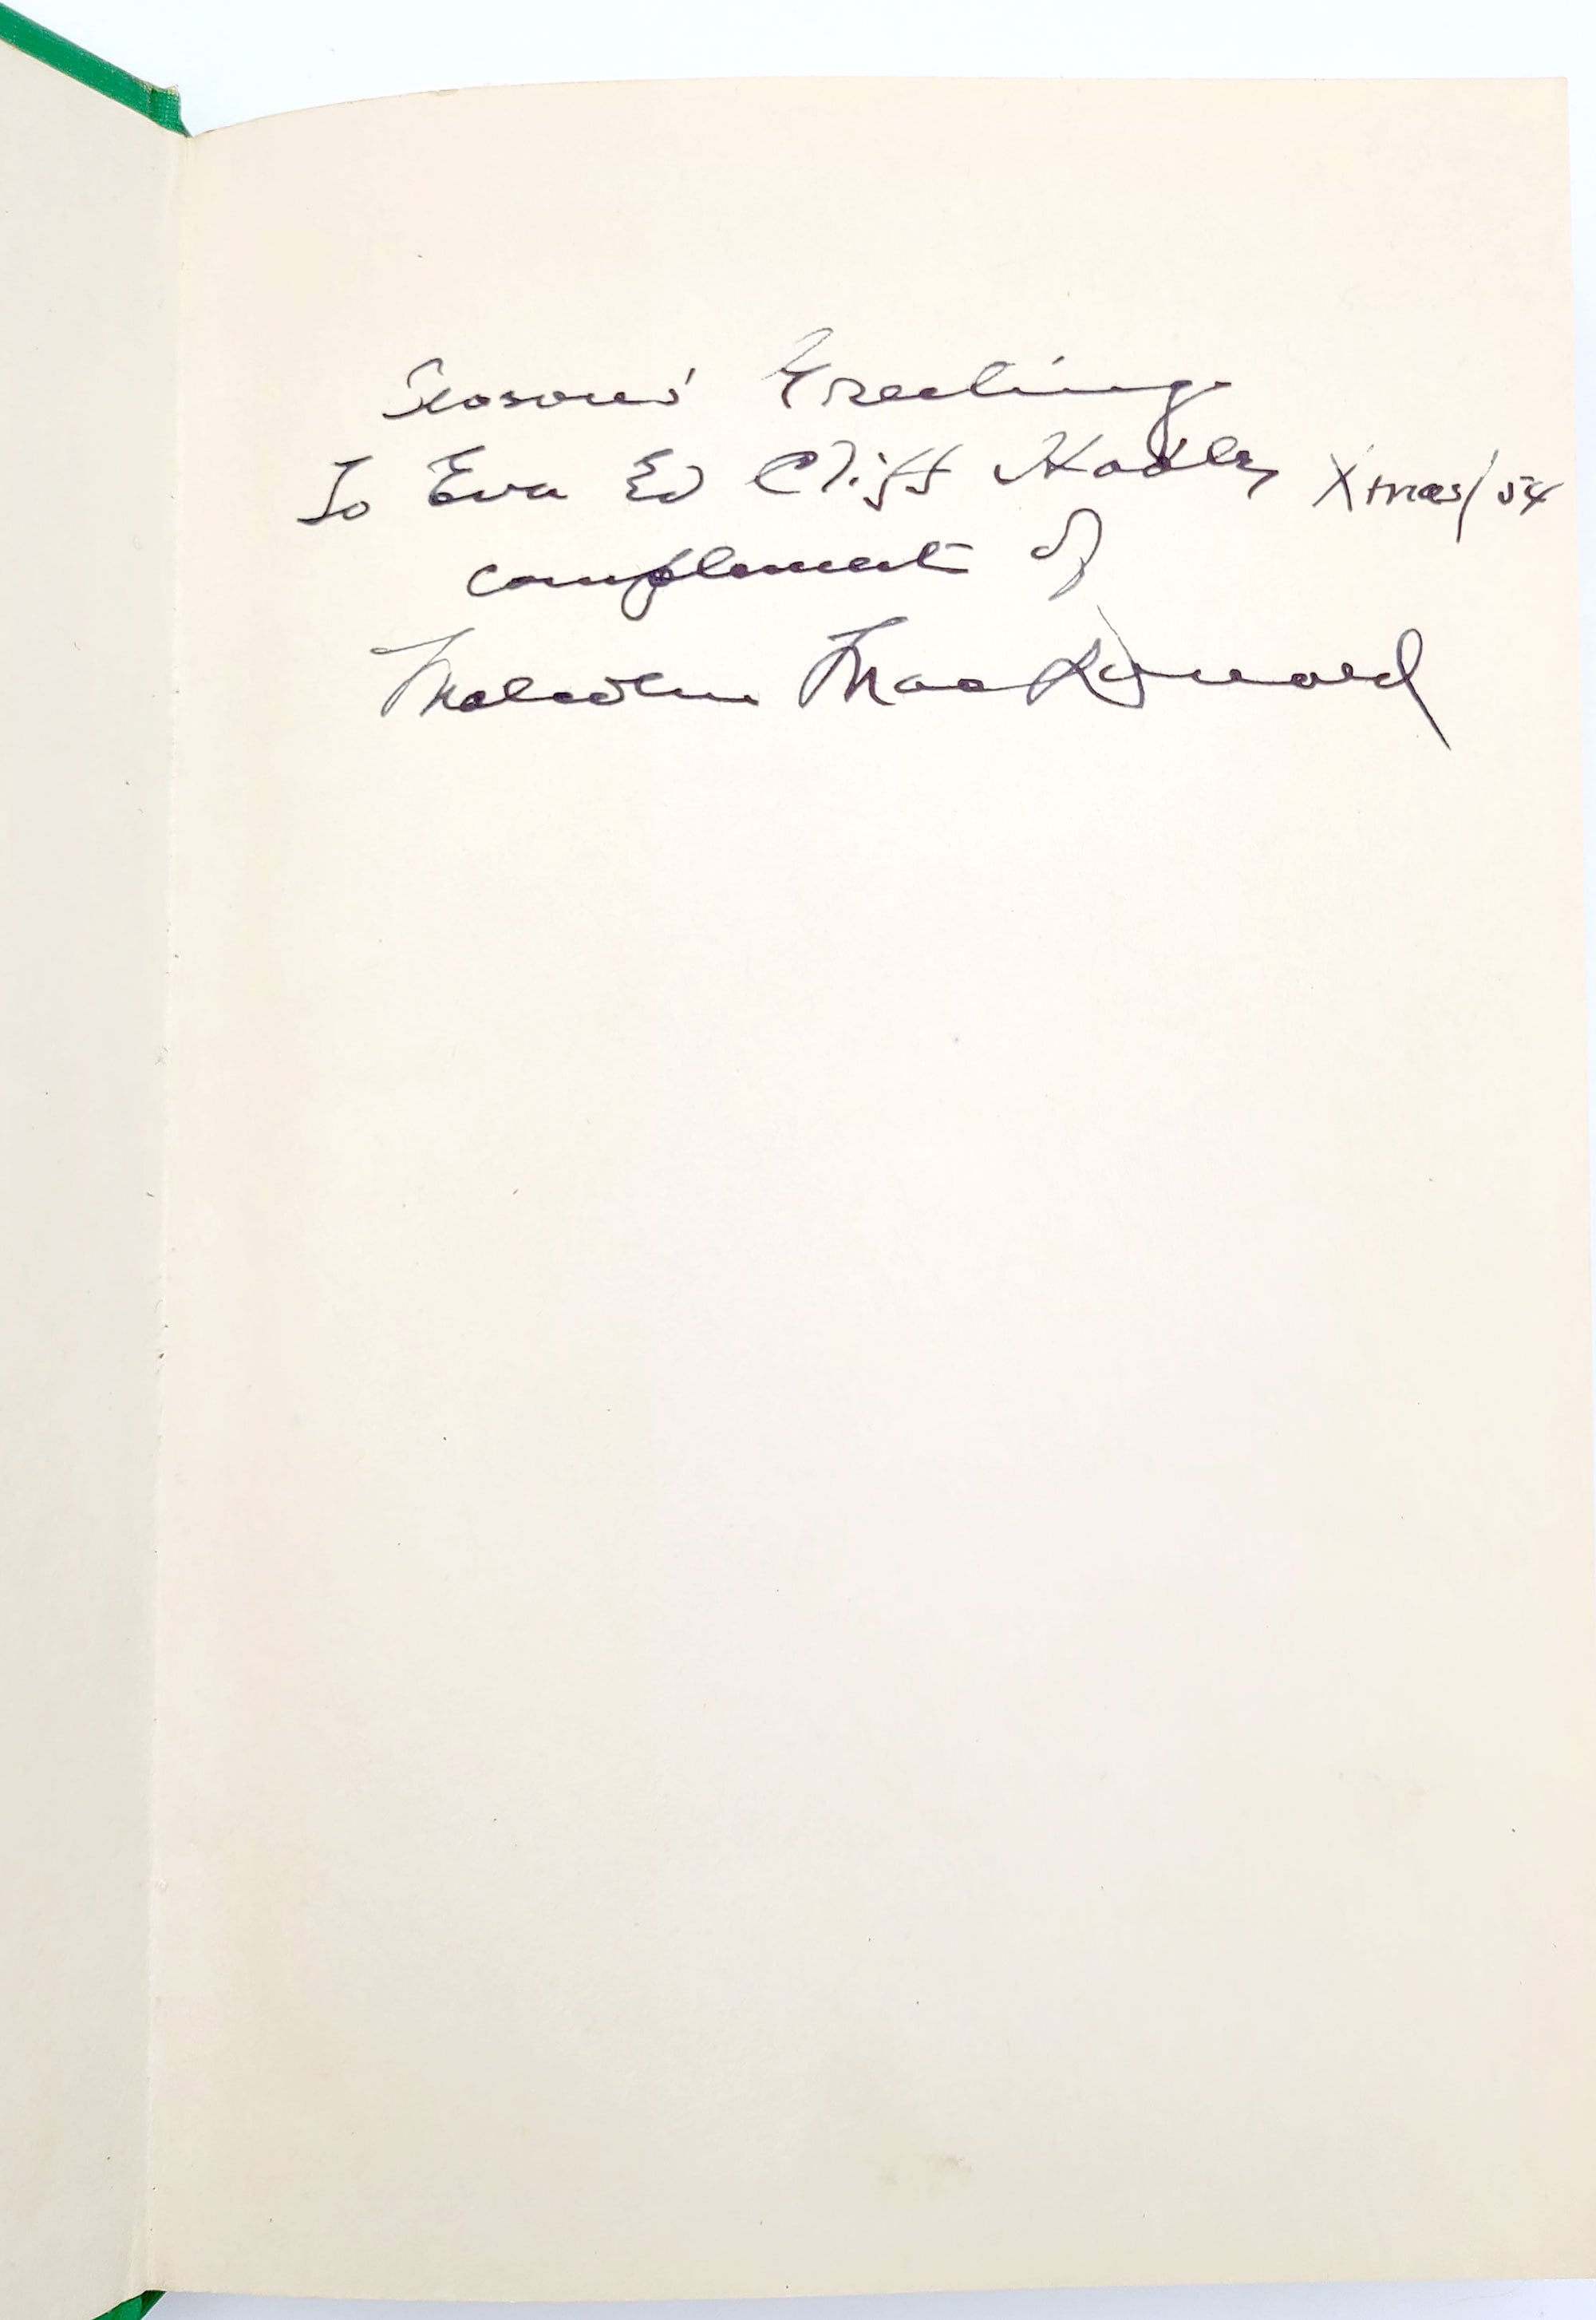 Seasons' Greetings
To Eva Ed Cliff Hadley Xmas/54
complement of
Malcolm